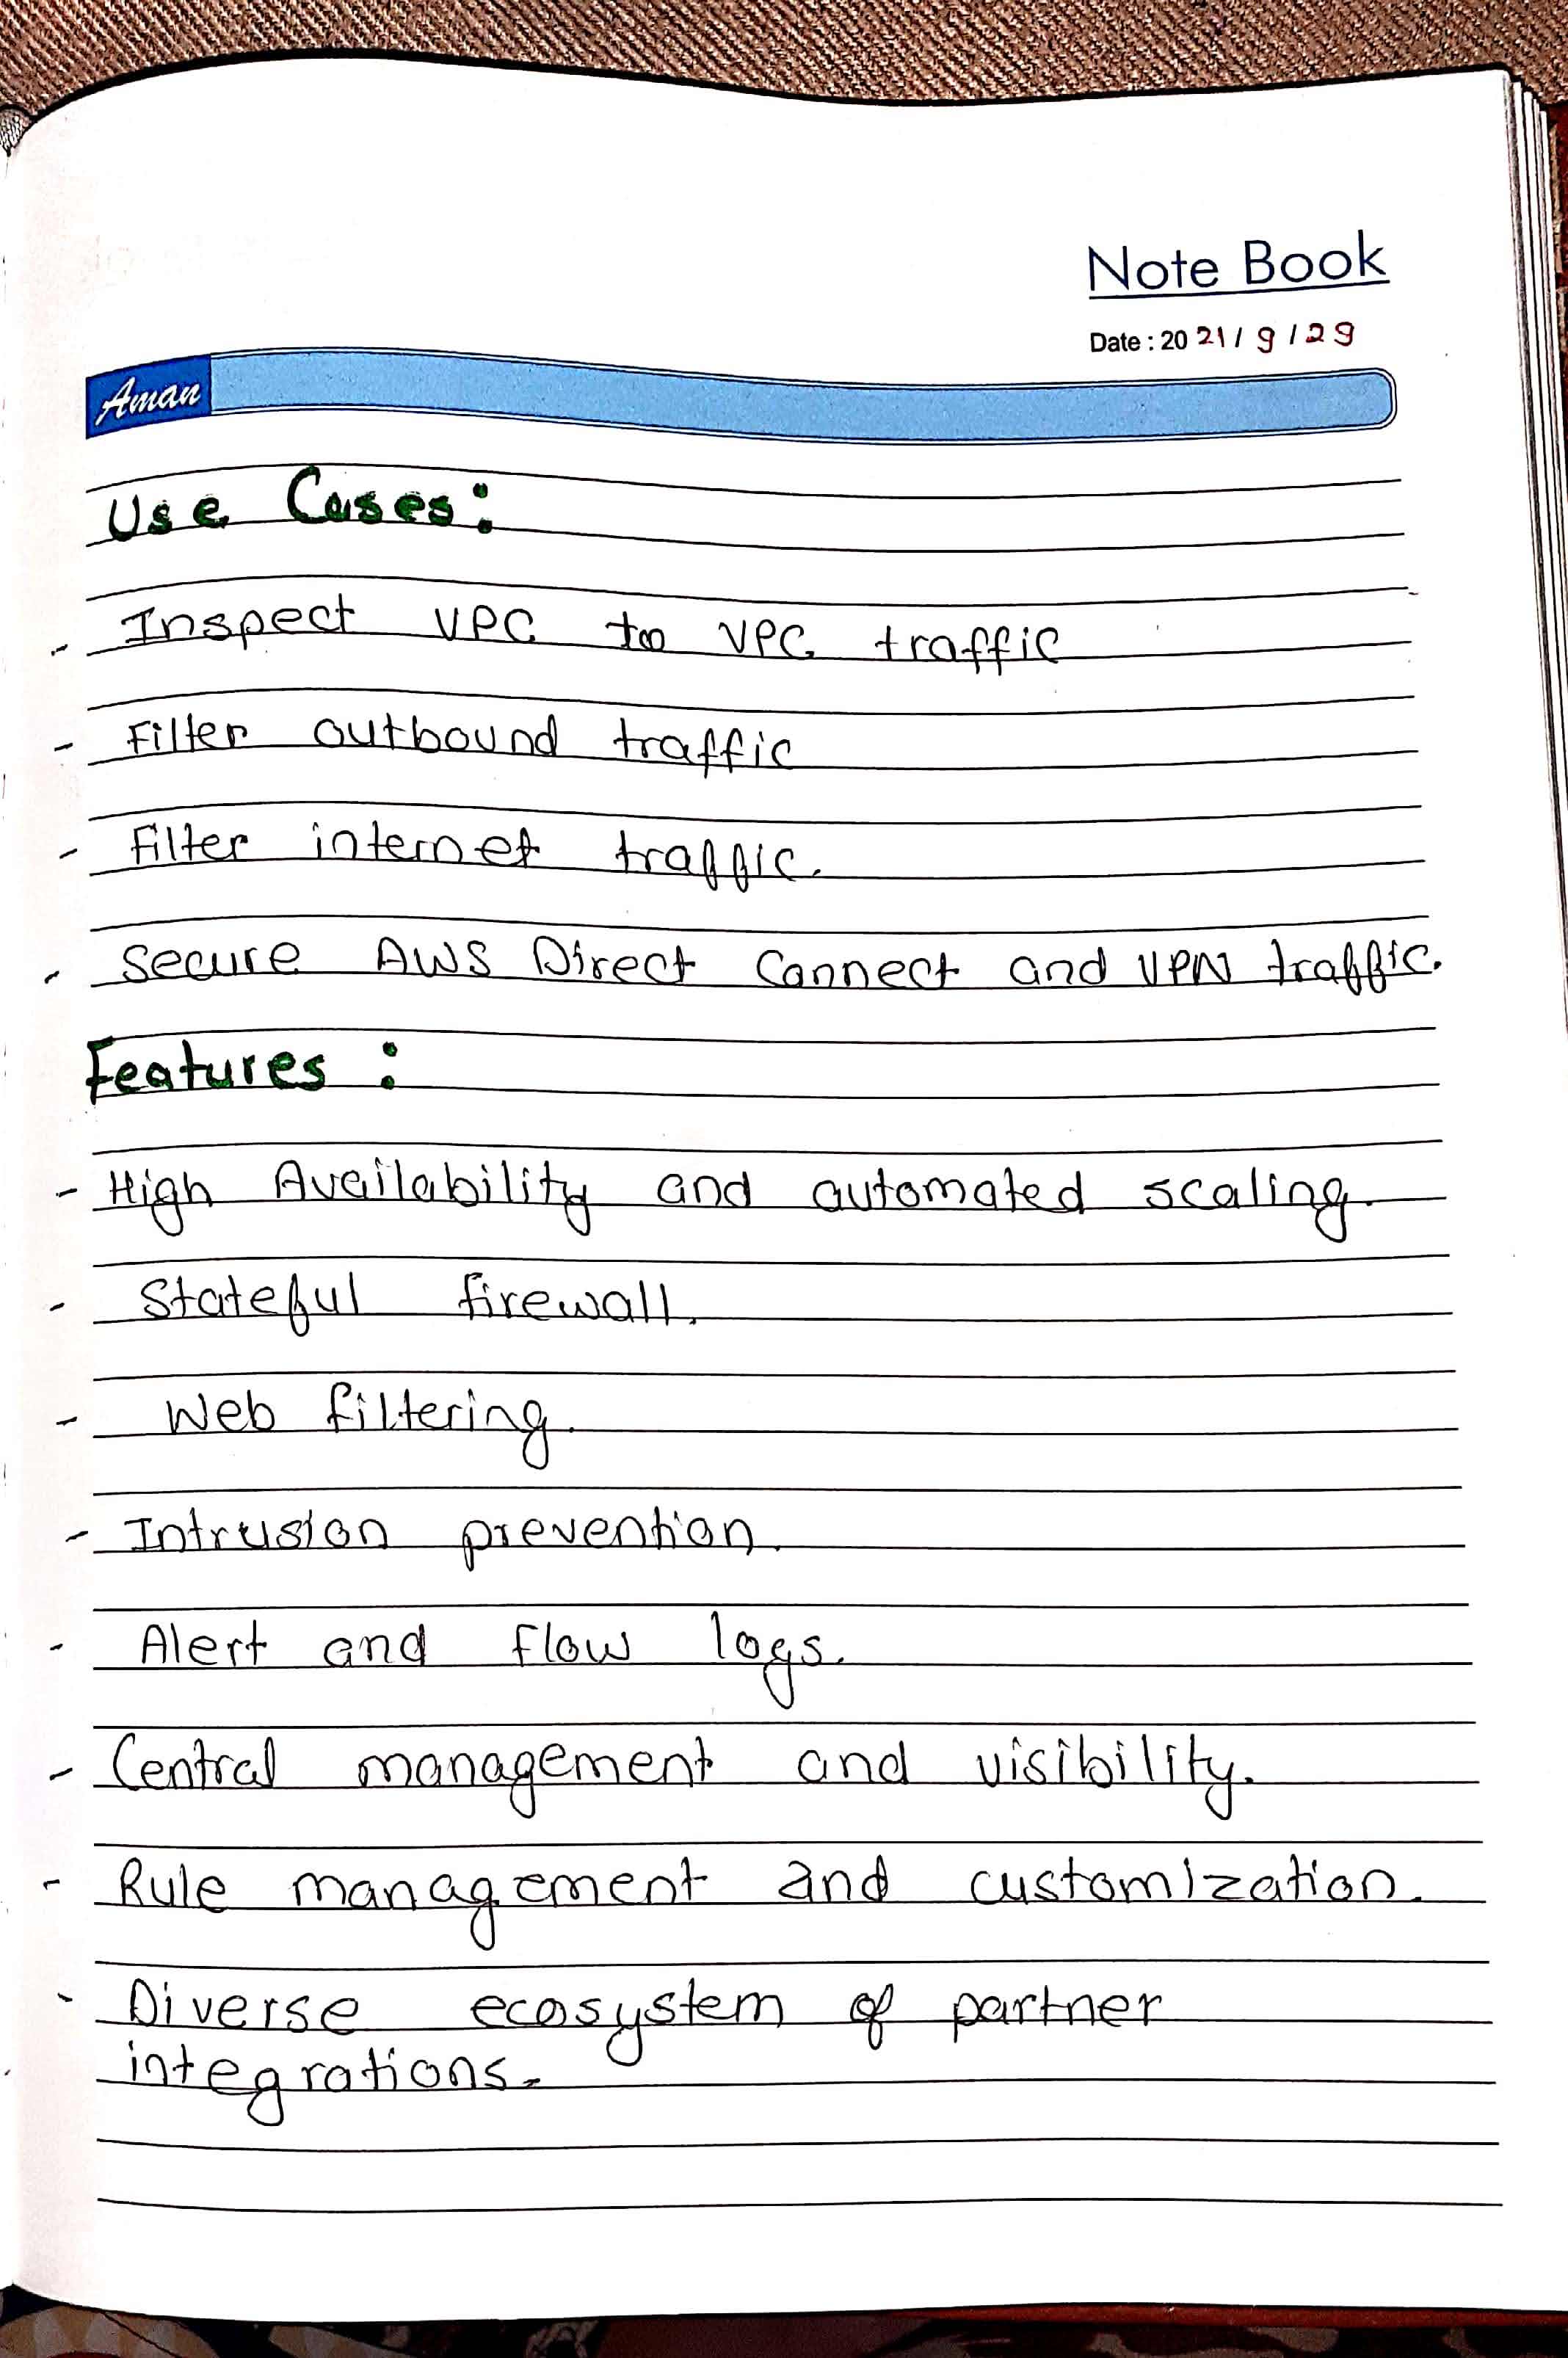 Note Book
Date : 2021/9/29
Aman
Use Cases:
- Inspect VPC to VPC traffic
- Filter outbound traffic
- Filter internet traffic.
- Secure AWS Direct Connect and VPN traffic.
Features :
- High Availability and automated scaling.
- Stateful firewall.
- Web filtering.
- Intrusion prevention.
- Alert and flow logs.
- Central management and visibility.
- Rule management and customization.
- Diverse ecosystem of partner
integrations.